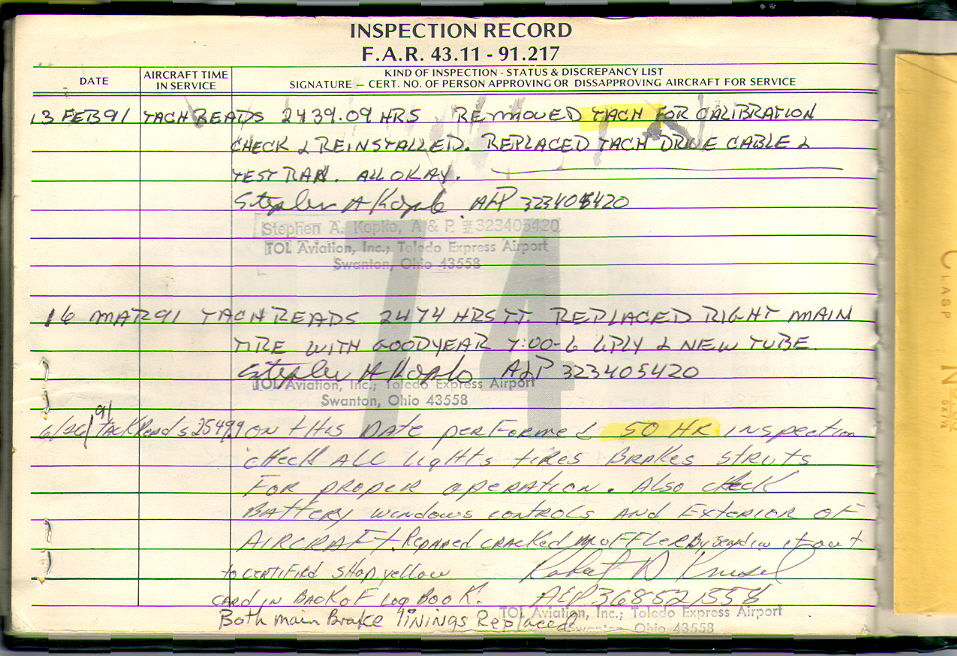 INSPECTION RECORD
F.A.R. 43.11 - 91.217
DATE
AIRCRAFT TIME IN SERVICE
KIND OF INSPECTION - STATUS & DISCREPANCY LIST
SIGNATURE — CERT. NO. OF PERSON APPROVING OR DISAPPROVING AIRCRAFT FOR SERVICE
13 FEB 91 TACH READS 2439.09 HRS REMOVED TACH FOR CALIBRATION
CHECK & REINSTALLED. REPLACED TACH DRIVE CABLE &
TEST RAN. ALL OKAY.
Stephen A Kopko A&P 323405420
Stephen A. Kopko, A & P # 323405420
TOL Aviation, Inc.; Toledo Express Airport
Swanton, Ohio 43558
74
16 MAR 91 TACH READS 2474 HRS TT. REPLACED RIGHT MAIN
TIRE WITH GOODYEAR 7:00-6 6PLY & NEW TUBE.
Stephen A Kopko A&P 323405420
TOL Aviation, Inc.; Toledo Express Airport
Swanton, Ohio 43558
6/26/91 Tack Reads 2549.9 ON tHIS DAte perFormed 50 HR inspection
check ALL Lights tires BRAKES STRUTS
FOR PROPER OPERATION. ALSO check
BATTERY WINDOWS CONTROLS AND EXTERIOR OF
AIRCRAFT. Repaired CRACKED MUFFLER By Sendin it out
to CERTIFIED Shop yellow
CARD IN BACK OF Log BOOK.
Robert D
A&P 368521558
Both main Brake linings Replaced
TOL Aviation, Inc.; Toledo Express Airport
Swanton, Ohio 43558
CLASP